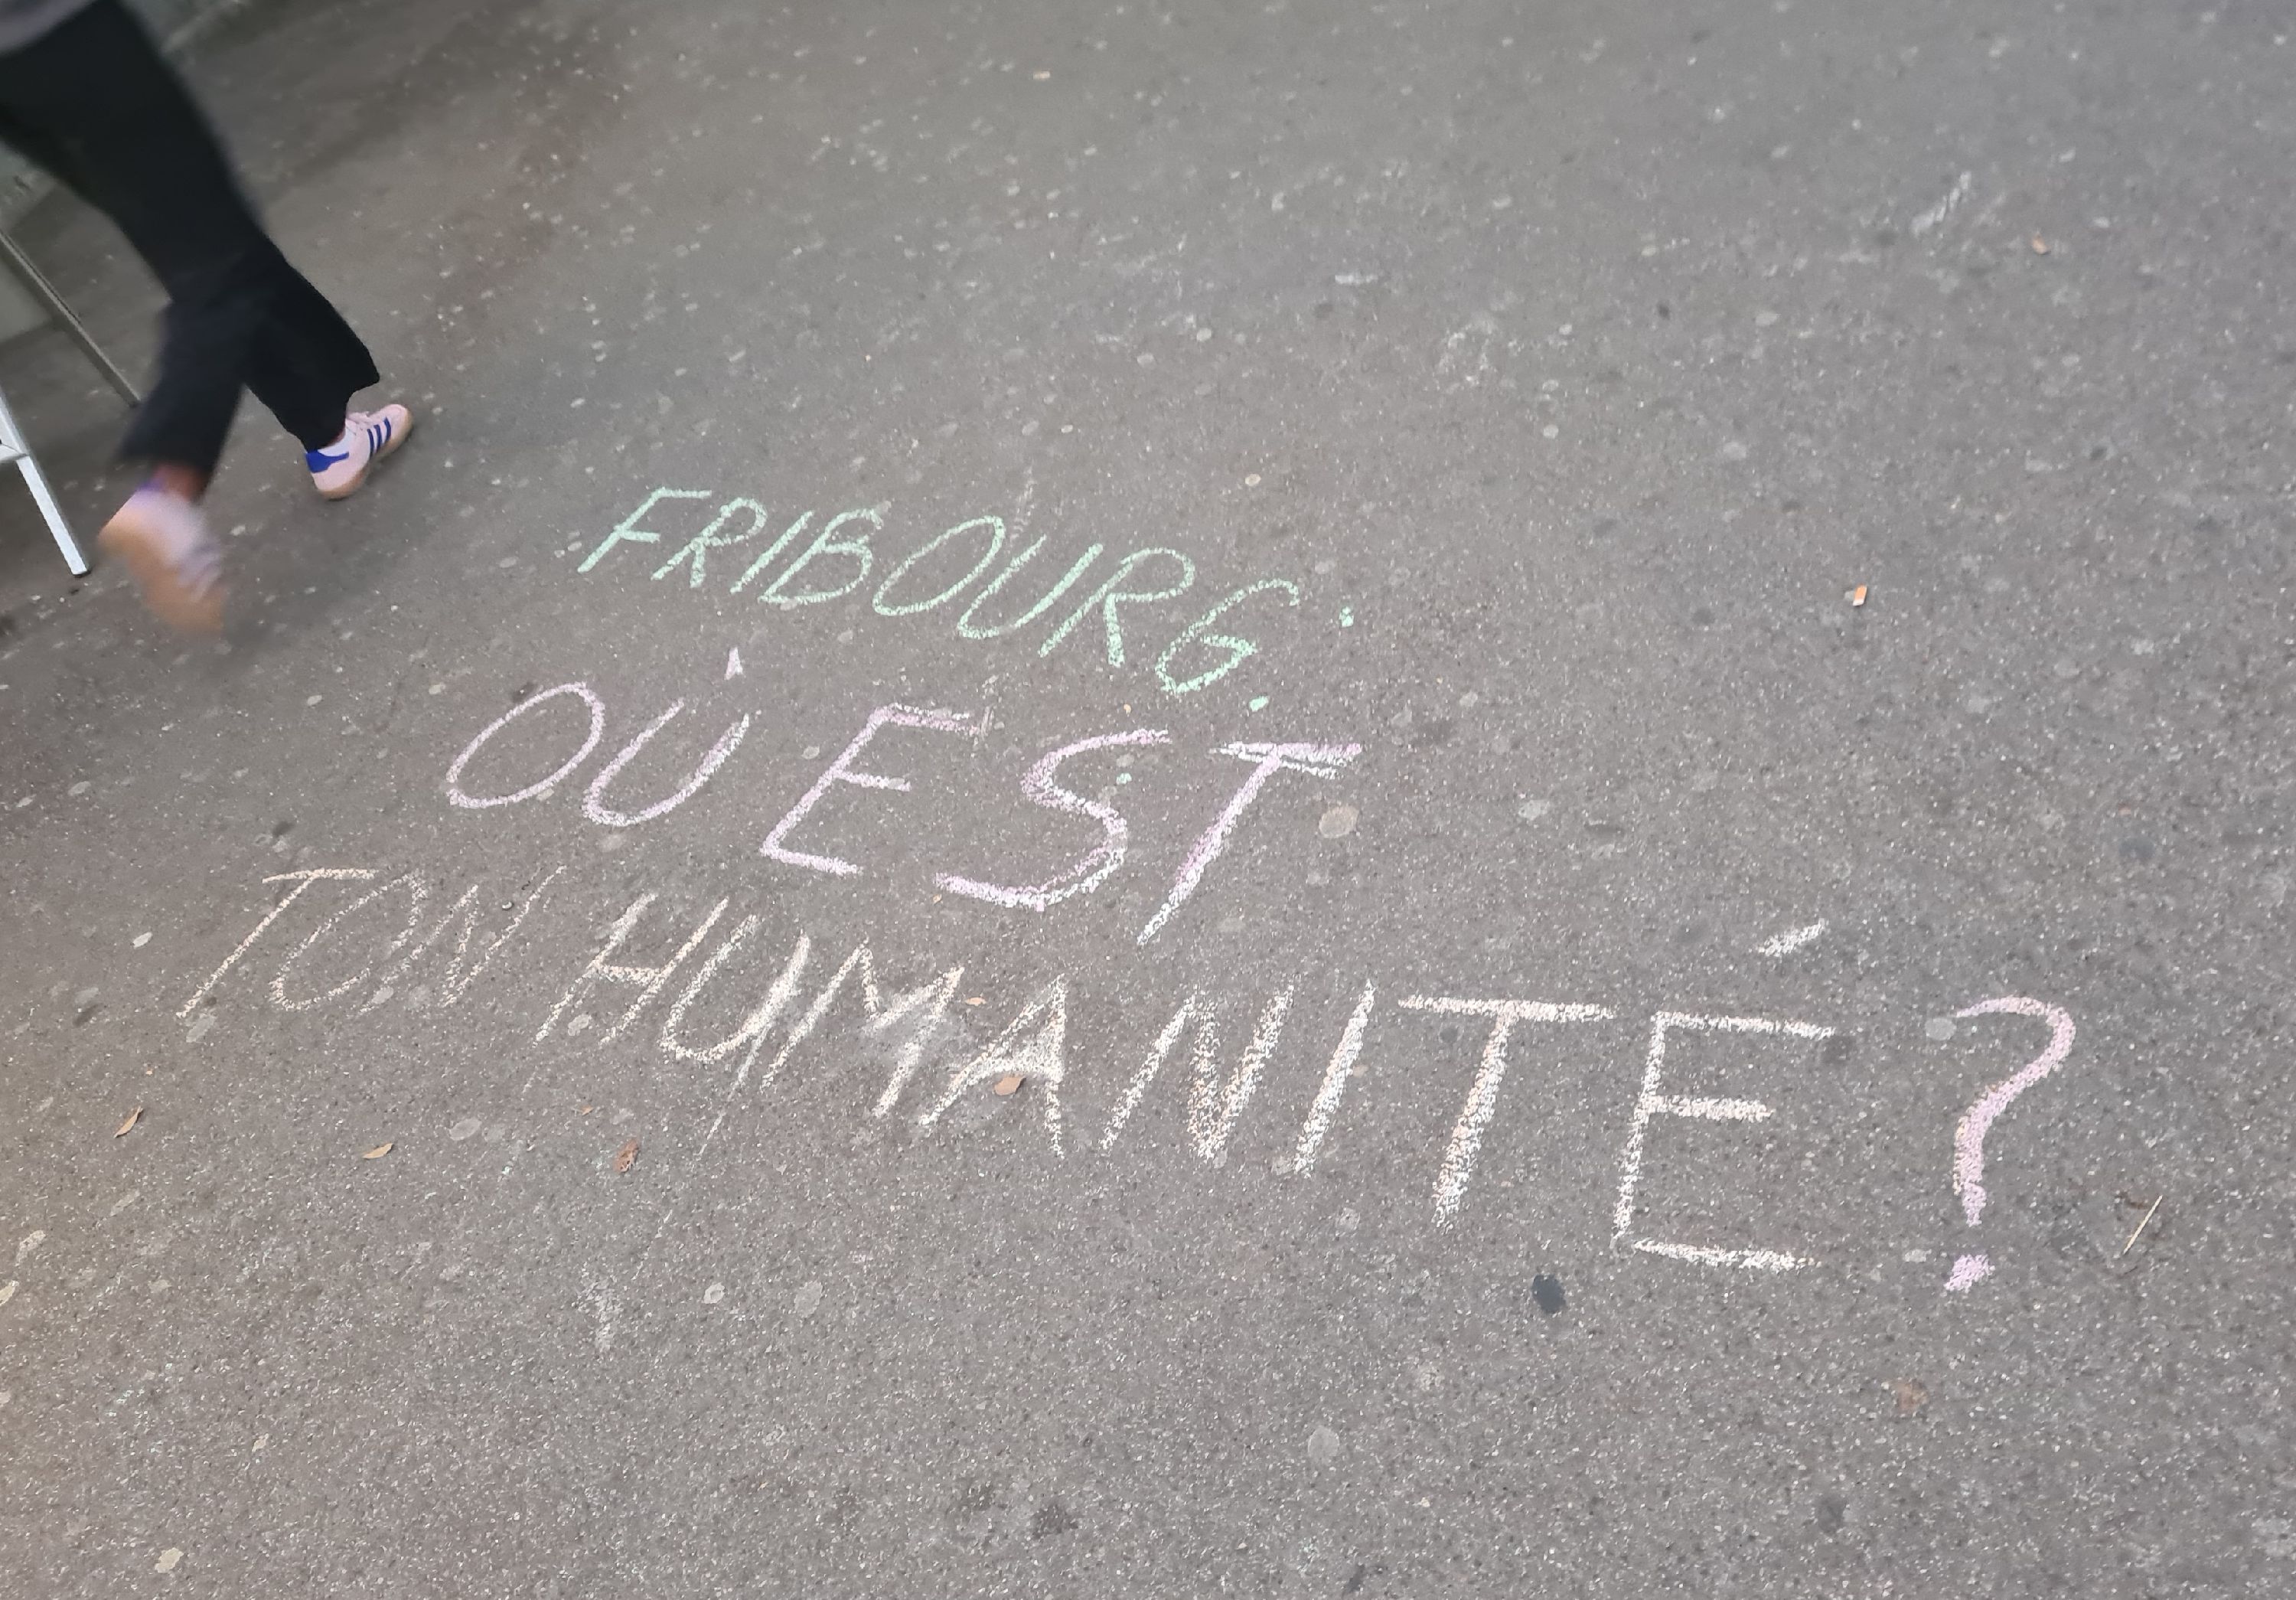 FRIBOURG:
OÙ EST
TON HUMANITÉ?